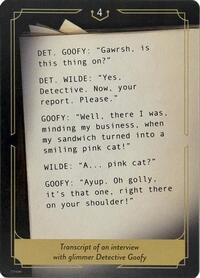 4
DET. GOOFY: "Gawrsh, is
this thing on?"
DET. WILDE: "Yes,
Detective. Now, your
report. Please."
GOOFY: "Well, there I was,
minding my business, when
my sandwich turned into a
smiling pink cat!"
WILDE: "A... pink cat?"
GOOFY: "Ayup. Oh golly,
it's that one, right there
on your shoulder!"
Transcript of an interview
with glimmer Detective Goofy